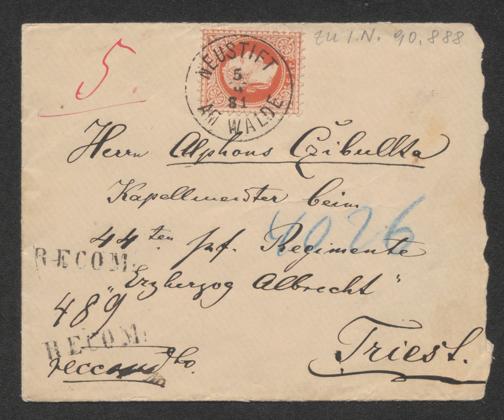 zu I.N. 90.888
5.
NEUSTIFT
5
3
81
AM WALDE
Herrn Alphons Czibulka
Kapellmeister beim
4026
44ten Inf. Regimente
RECOM.
"Erzherzog Albrecht"
489
RECOM.
Triest.